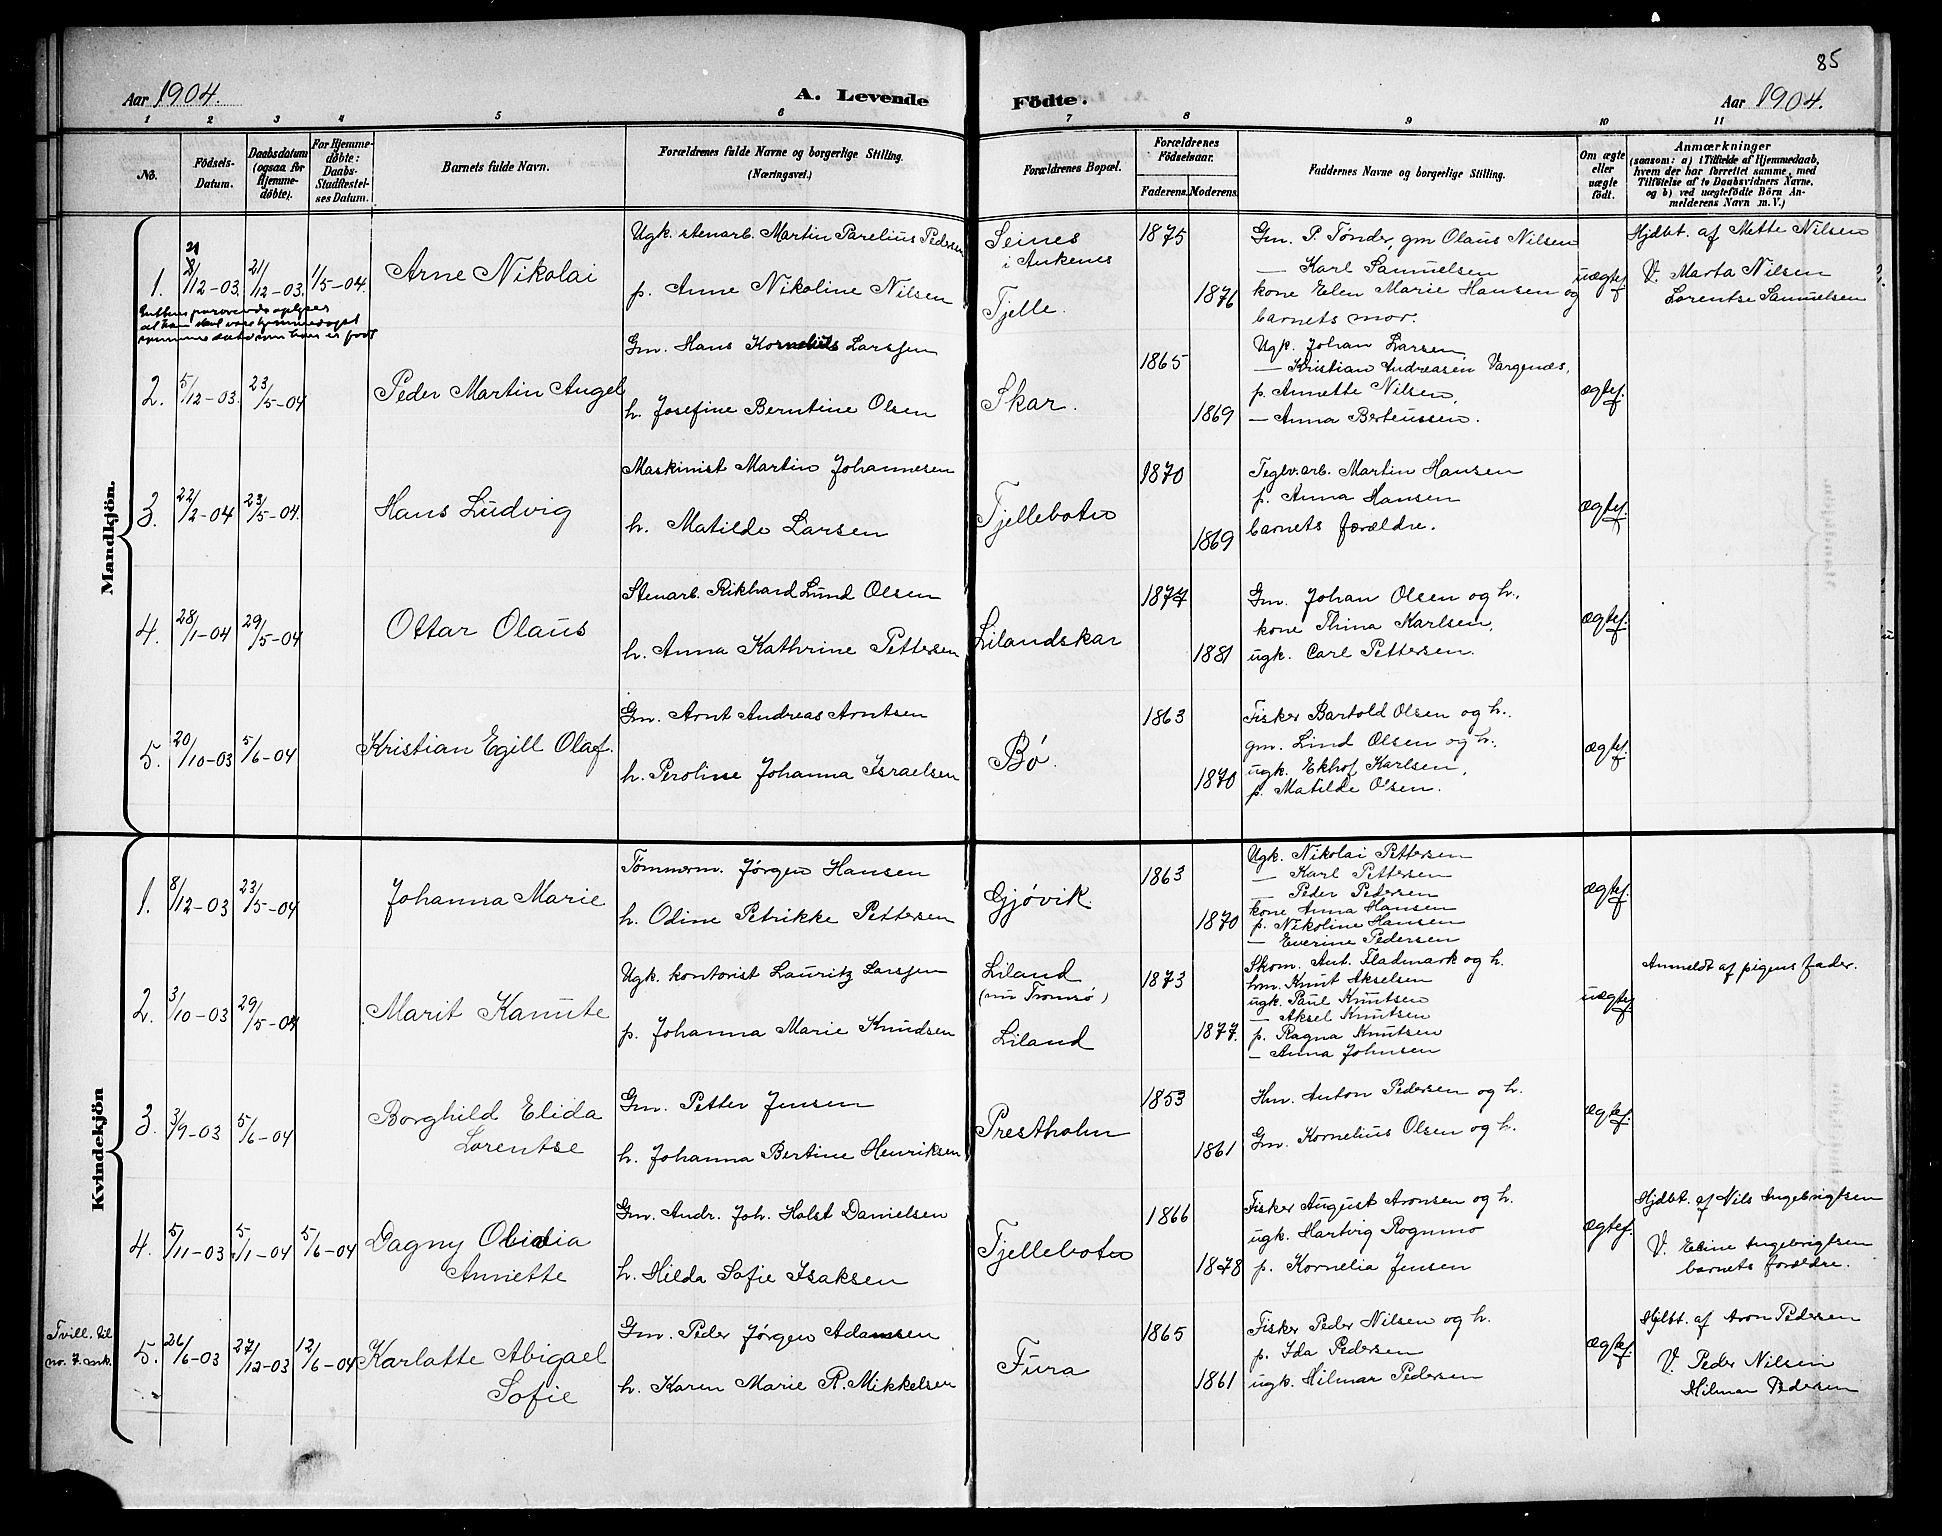 85
Aar 1904.
A. Levende
Födte.
Aar 1904.
1 2 3 4 5 6 7 8 9 10 11
No.
Födsels-
Datum.
Daabsdatum
(ogsaa for
Hjemme-
døbte).
For Hjemme-
døbte:
Daabs-
Stadfæstel-
ses Datum.
Barnets fulde Navn.
Forældrenes fulde Navne og borgerlige Stilling.
(Næringsvei.)
Forældrenes Bopæl.
Forældrenes
Födselsaar.
Faderens. Moderens.
Faddernes Navne og borgerlige Stilling.
Om ægte
eller
uægte
født.
Anmærkninger
(saasom: a) i Tilfælde af Hjemmedaab,
hvem der har forrettet samme, med
Tilföielse af to Daabsvidners Navne,
og b) ved uægtefödte Börn An-
melderens Navn m. V.)
Mandkjön.
1. 21 8/12-03. 21/12-03. 1/5-04. Arne Nikolai
Ugk. stenarb. Martin Parelius Pedersen
p. Anne Nikoline Nilsen
Seines
i Ankenes
Fjelle.
1875
1876
Gm. P. Tønder, gm Olaus Nilsen
— Karl Samuelsen
kone Elen Marie Hansen og
barnets mor.
uægtef
Hjdbt. af Mette Nilsen
V. Marta Nilsen
Lorentse Samuelsen
2. 5/12-03. 23/5-04 Peder Martin Angel
Gm. Hans Kornelius Larssen
h. Josefine Berntine Olsen
Skar.
1865
1869
Ugk. Johan Larsen
— Kristian Andreasen Vargenæs,
p. Annette Nilsen,
— Anna Berteussen.
ægtef.
3. 22/2-04 23/5-04. Hans Ludvig
Maskinist Martin Johannesen
h. Matilde Larsen
Fjellebotn
1870
1869
Teglv.arb. Martin Hansen
p. Anna Hansen
barnets forældre.
ægtef.
4. 28/1-04 29/5-04 Ottar Olaus
Stenarb. Rikhard Lund Olsen
h. Anna Kathrine Pettersen
Lilandskar
1874
1881
Gm. Johan Olsen og h.
kone Thina Karlsen,
ugk. Carl Pettersen.
ægtef.
5. 20/10-03 5/6-04 Kristian Egill Olaf.
Gm. Arnt Andreas Arntsen
h. Peroline Johanna Israelsen
Bø.
1863
1870
Fisker Bartold Olsen og h.
gm. Lind Olsen og h.
ugk. Ekhof Karlsen,
p. Matilde Olsen.
ægtef.
Kvindekjön
1. 8/12-03 23/5-04 Johanna Marie
Tømmerm. Jørgen Hansen
h. Odine Petrikke Pettersen
Gjøvik.
1863
1870
Ugk. Nikolai Pettersen
— Karl Pettersen
— Peder Pedersen
kone Anna Hansen
p. Nikoline Hansen
— Everine Pedersen
ægtef.
2. 3/10-03 29/5-04 Marit Kanute
Ugk. kontorist Lauritz Larssen
p. Johanna Marie Knudsen
Liland
(nu Tromsø)
Liland
1873
1877.
Skom. Ant. Fladmark og h.
hm. Knut Akselsen
ugk. Paul Knutsen
— Aksel Knutsen
p. Ragna Knutsen
— Anna Johnsen
uægtef
Anmeldt af pigens fader.
3. 3/9-03 5/6-04 Borghild Elida
Lorentse
Gm. Petter Jensen
h. Johanna Bertine Henriksen
Prestholm
1853
1861
Hm. Anton Pedersen og h.
Gm. Kornelius Olsen og h.
ægtef.
4. 5/11-03 5/1-04 5/6-04 Dagny
Annette
Gm. Andr. Joh. Holst Danielsen
h. Hilda Sofie Isaksen
Fjellebotn
1866
1878
Fisker August Aronsen og h.
ugk. Hartvig Rognmo
p. Kornelia Jensen
ægtef.
Hjdbt. af Nils Ingebrigtsen
V. Eline Ingebrigtsen
barnets forældre.
Tvill. til
no. 7. mk.
5. 26/6-03 27/12-03 12/6-04 Karlatte Abigael
Sofie
Gm. Peder Jørgen Adamsen
h. Karen Marie R. Mikkelsen
Fura
1865
1861
Fisker Peder Nilsen og h.
p. Ida Pedersen
ugk. Hilmar Pedersen
ægtef.
Hjdbt. af Aron Pedersen
V. Peder Nilsen
Hilmar Pedersen